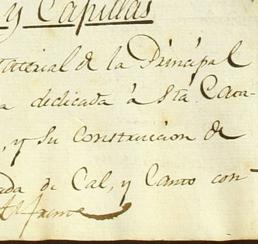 y Capillas
material de la Principal
a dedicada à Sta Cata-
, y su construccion de
ada de Cal, y Canto con